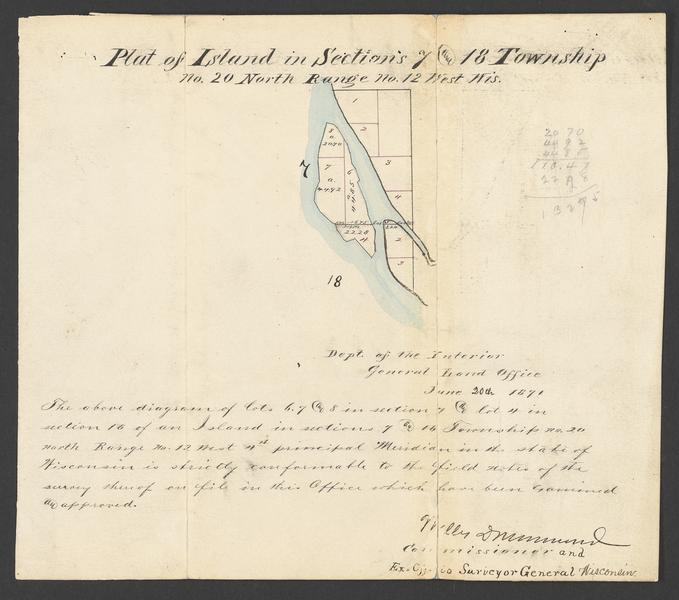 Plat of Island in Section's 7 & 18 Township
No. 20 North Range No. 12 West Wis.
1
2
3
4
8
a
2070
7
a.
44.92
6
4485
7
22.28
4
2
3
18
2070
4492
4485
Dept. of the Interior
General Land Office
June 20th 1871
The above diagram of lots 6.7 & 8 in section 7 & lot 4 in
section 18 of an Island in sections 7 & 18 Township No. 20
North Range No. 12 West 4th principal Meridian in the state of
Wisconsin is strictly conformable to the field notes of the
survey thereof on file in this Office which have been examined
& approved.
Willis Drummond
Commissioner and
Ex-Officio Surveyor General Wisconsin